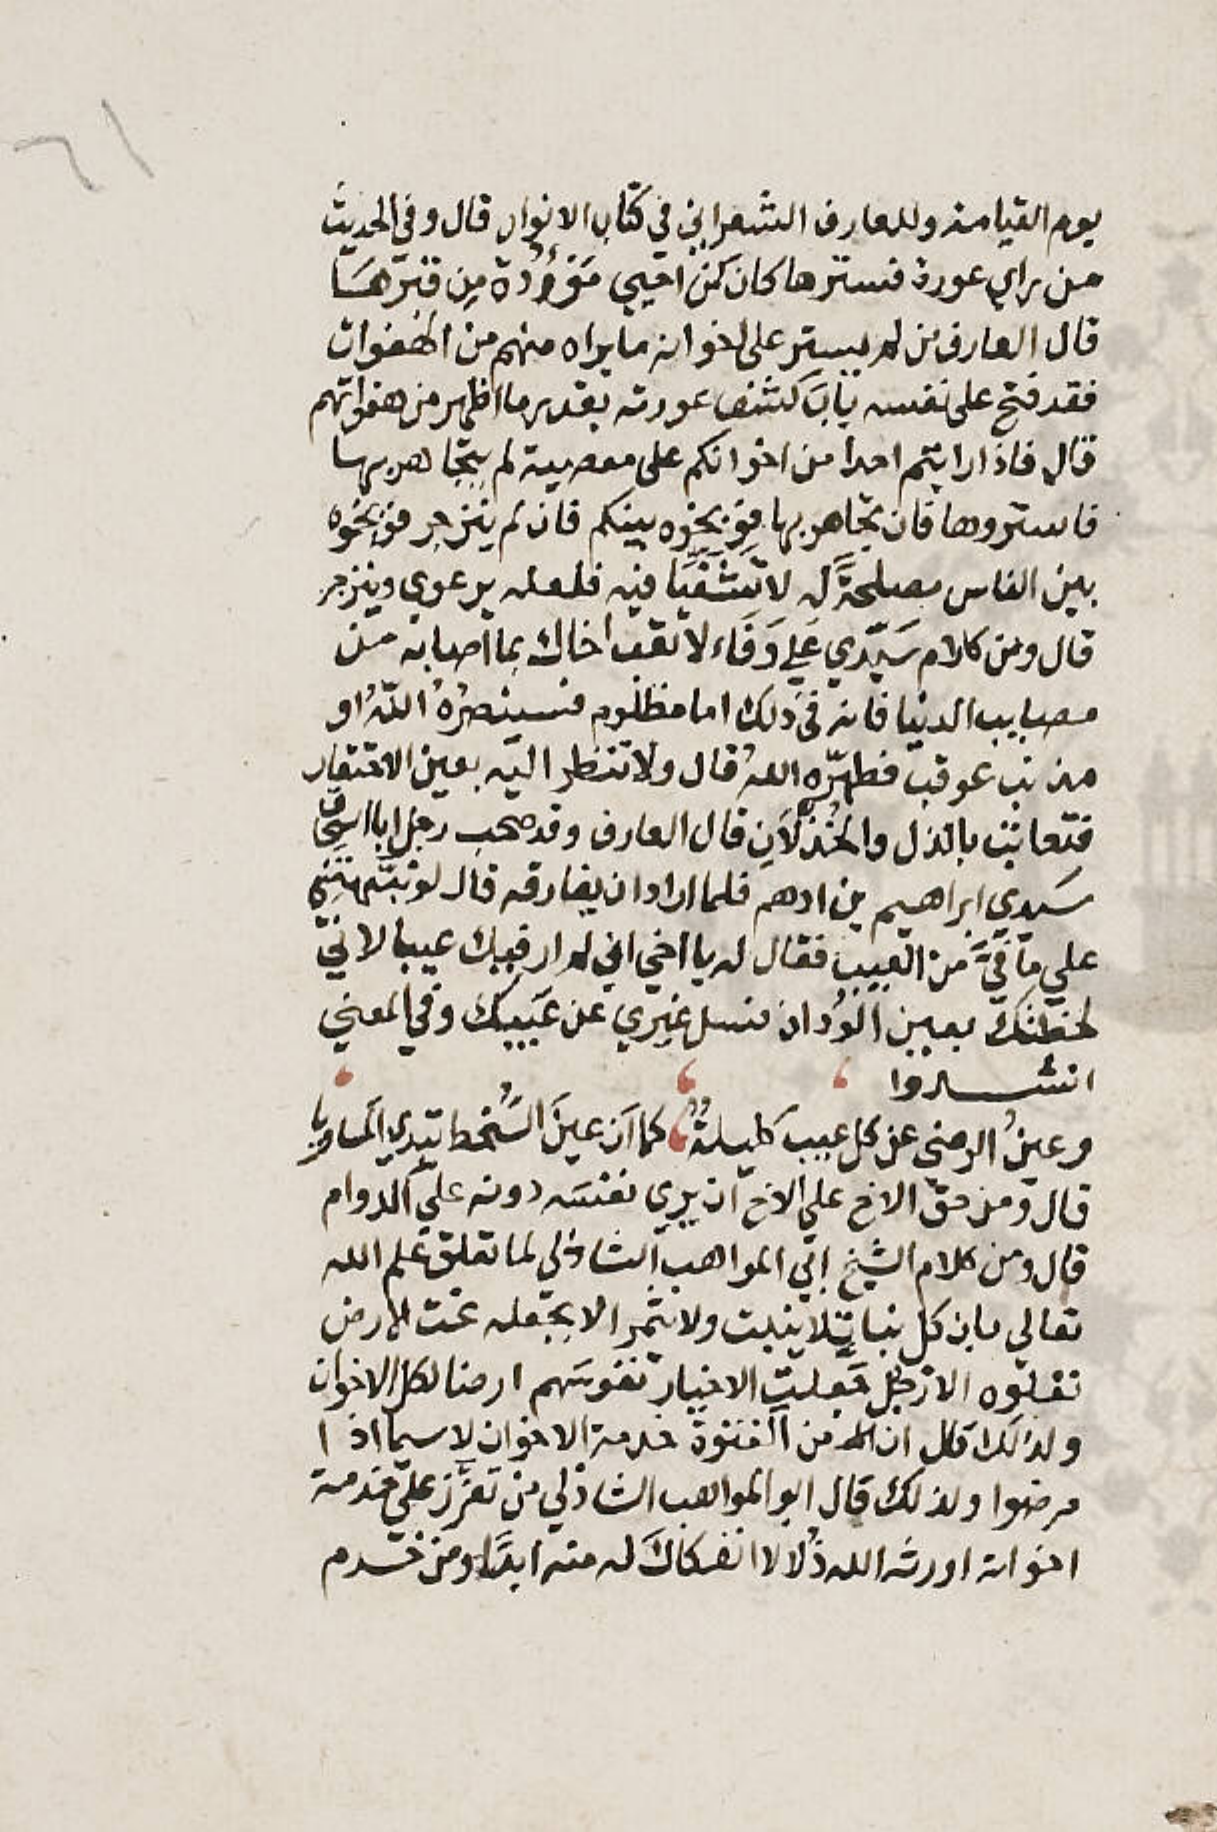 ٦١
يوم القيامة وللعارف الشعراني في كتاب الانوار قال وفي الحديث
من راي عورة فسترها كان كمن احيي مَوْؤُدة مِن قبرهَا
قال العارف من لم يستر على اخوانه ما يراه منهم من الهفوات
فقد فتح على نفسه بابَ كشف عورته بقدر ما اظهر من هفواتهم
قال فاذا رايتم احدا من اخوانكم على معصية لم يتجاهر بها
فاستروها فان تجاهر بها فوبخوه بينكم فان لم ينزجر فوبخوه
بين الناس مصلحةً له لا تَشَفِّيًا فيه فلعله يرعوي وينزجر
قال ومن كلام سَيّدي عَلي وَفَاء لا تعب اخاك بما اصابه من
مصايب الدنيا فانه في ذلك اما مظلوم فسينصُرُهُ اللّهُ او
مذنب عوقب فطهّره اللهُ قال ولا تنظر اليه بعين الاحتقار
فتعاقب بالذل والخُذْلَانِ قال العارف وقد صحب رجل ابا اسحاق
سَيدي ابراهيم بن ادهم فلما اراد ان يفارقه قال لو نبّهتني
علي ما فيَّ من العيب فقال له يا اخي اني لم ار فيك عيبا لانيّ
لحظتك بعين الوُداد فسل غيري عن عَيبك وفي المعني
انشدوا
وعينُ الرضى عن كل عيب كليلةٌ كما اَن عينَ السُّخط تبدي المساويا
قال ومن حقّ الاخ علي الاخ ان يرى نفسَه دونه عليَ الدوام
قال ومن كلام الشيخ ابي المواهب الشاذلي لما تعلق علم الله
تعالي بان كل نباتٍ لا ينبت ولا يثمر الا بجعله تحت الارض
تعلوه الارجل جَعلتِ الاخيار نفوسَهم ارضا لكل الاخوان
ولذلك قال ان من الفتوة خدمة الاخوان لا سيما اذا
مرضوا ولذلك قال ابو المواهب الشاذلي من تعزّز علي خدمة
اخوانه اورثه الله ذُلا لا انفكاكَ له منه ابدًا ومن خدم